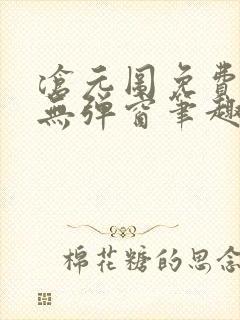 滄元圖免費
無彈窗筆趣
棉花糖的思念